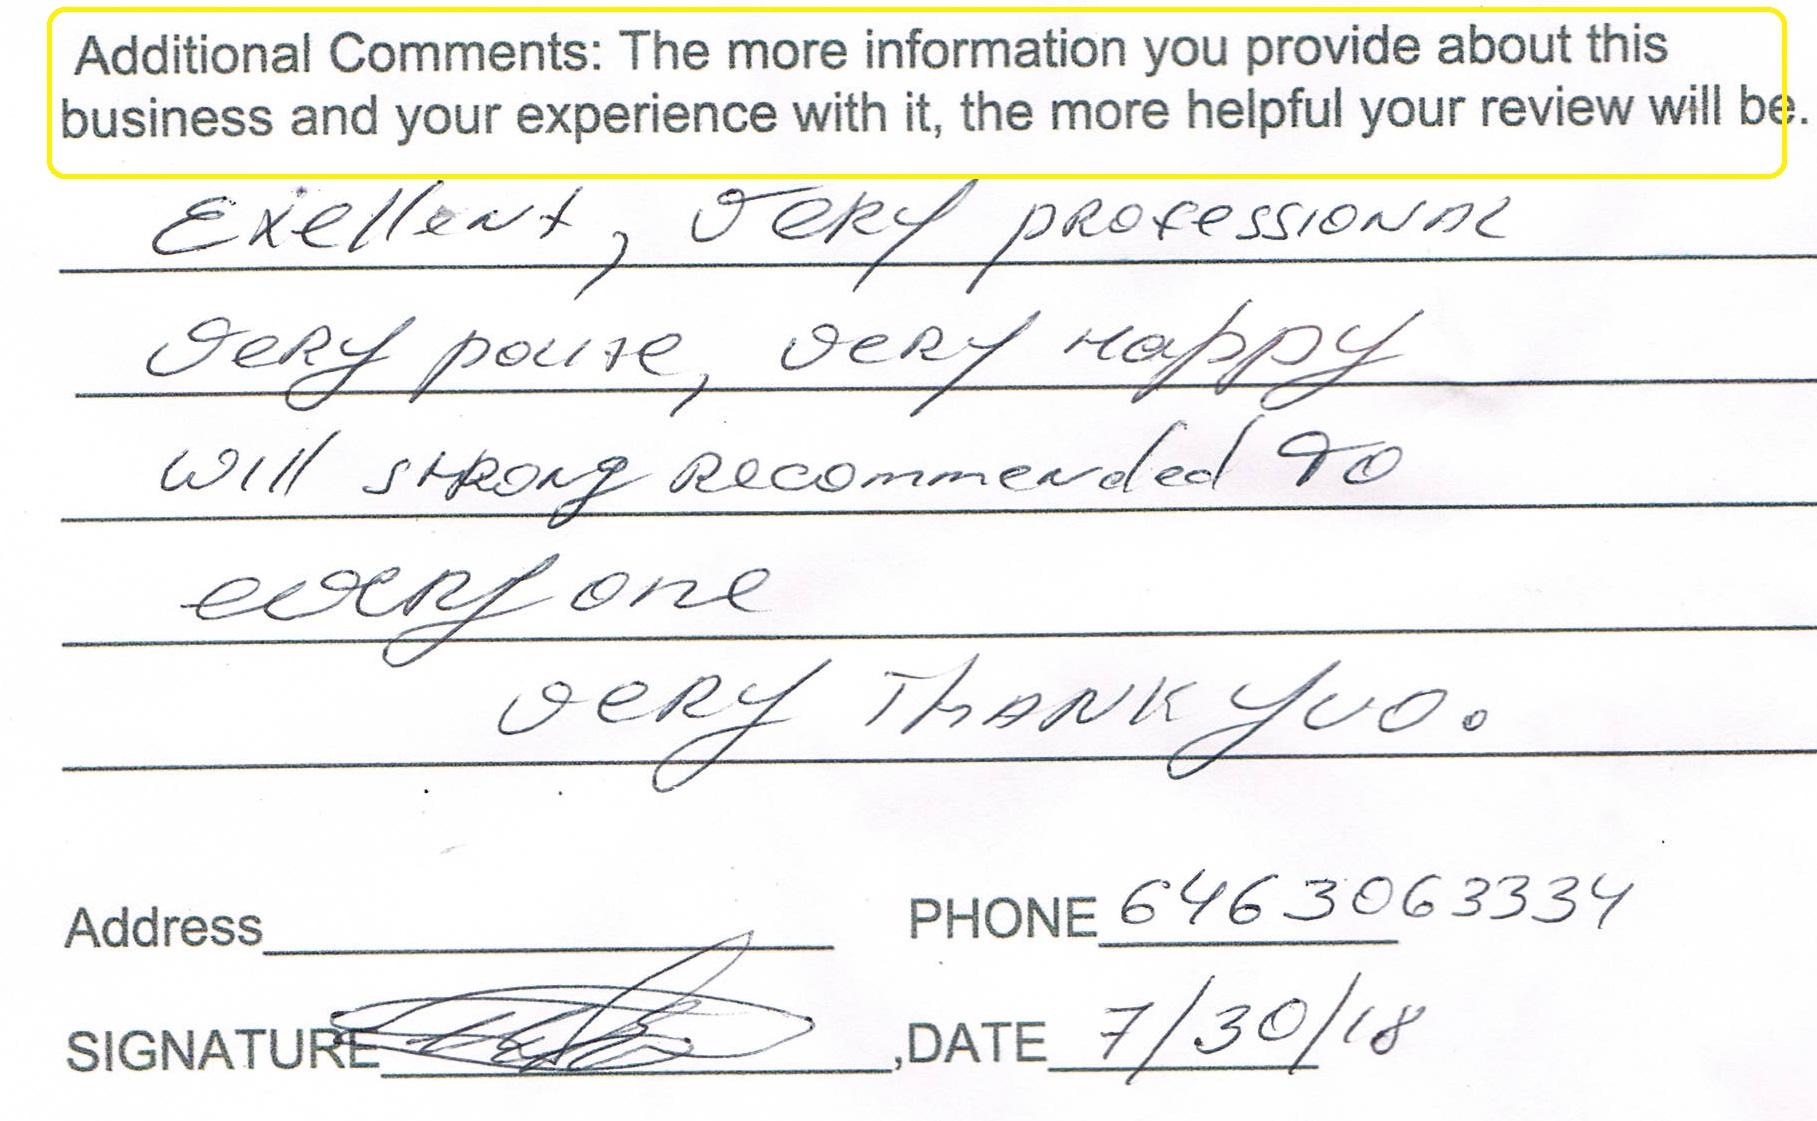 Additional Comments: The more information you provide about this
business and your experience with it, the more helpful your review will be.
Exellent, very professional
very polite, very happy
will strong recommended to
everyone
very THANK yuo.
Address
PHONE 6463063334
SIGNATURE
,DATE 7/30/18